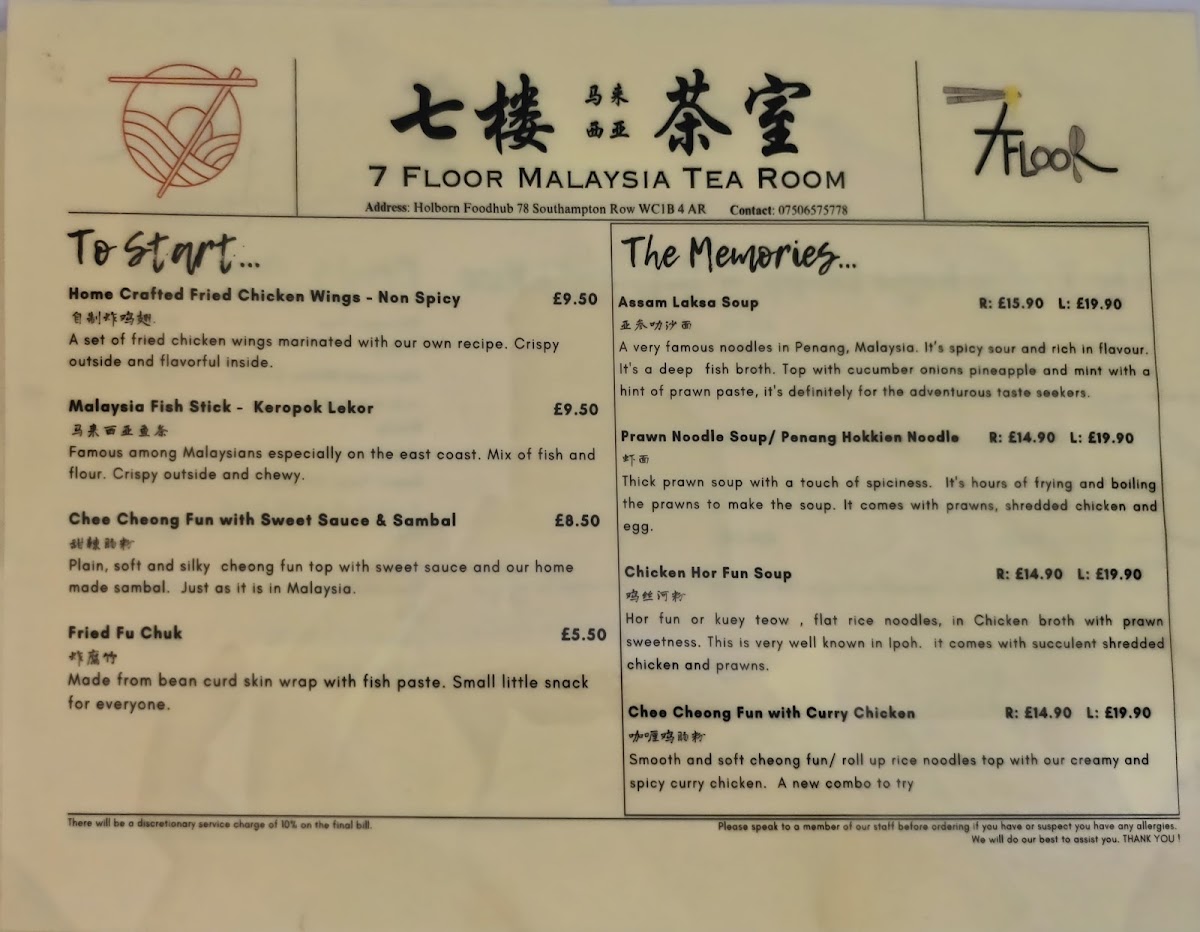 七楼 马来西亚 茶室
7 FLOOR MALAYSIA TEA ROOM
Address: Holborn Foodhub 78 Southampton Row WC1B 4 AR Contact: 07506575778
7FLOOR
To Start...
Home Crafted Fried Chicken Wings - Non Spicy £9.50
自制炸鸡翅.
A set of fried chicken wings marinated with our own recipe. Crispy
outside and flavorful inside.
Malaysia Fish Stick - Keropok Lekor £9.50
马来西亚鱼条
Famous among Malaysians especially on the east coast. Mix of fish and
flour. Crispy outside and chewy.
Chee Cheong Fun with Sweet Sauce & Sambal £8.50
甜辣肠粉
Plain, soft and silky cheong fun top with sweet sauce and our home
made sambal. Just as it is in Malaysia.
Fried Fu Chuk £5.50
炸腐竹
Made from bean curd skin wrap with fish paste. Small little snack
for everyone.
The Memories...
Assam Laksa Soup R: £15.90 L: £19.90
亚参叻沙面
A very famous noodles in Penang, Malaysia. It's spicy sour and rich in flavour.
It's a deep fish broth. Top with cucumber onions pineapple and mint with a
hint of prawn paste, it's definitely for the adventurous taste seekers.
Prawn Noodle Soup/ Penang Hokkien Noodle R: £14.90 L: £19.90
虾面
Thick prawn soup with a touch of spiciness. It's hours of frying and boiling
the prawns to make the soup. It comes with prawns, shredded chicken and
egg.
Chicken Hor Fun Soup R: £14.90 L: £19.90
鸡丝河粉
Hor fun or kuey teow , flat rice noodles, in Chicken broth with prawn
sweetness. This is very well known in Ipoh. it comes with succulent shredded
chicken and prawns.
Chee Cheong Fun with Curry Chicken R: £14.90 L: £19.90
咖喱鸡肠粉
Smooth and soft cheong fun/ roll up rice noodles top with our creamy and
spicy curry chicken. A new combo to try
There will be a discretionary service charge of 10% on the final bill.
Please speak to a member of our staff before ordering if you have or suspect you have any allergies.
We will do our best to assist you. THANK YOU !